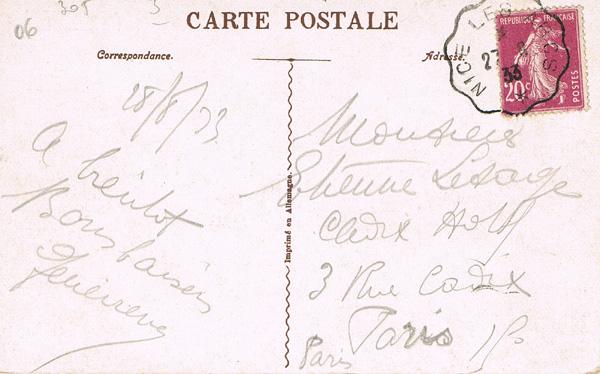 06
305
3
CARTE POSTALE
Correspondance.
Adresse.
NICE LES
27
33
REPUBLIQUE FRANÇAISE
20c
POSTES
28/8/33
A bientôt
Bons baisers
Genevieve
Imprimé en Allemagne.
Monsieur
Etienne Lesage
Cadix Hotel
3 Rue Cadix
Paris 15
Paris